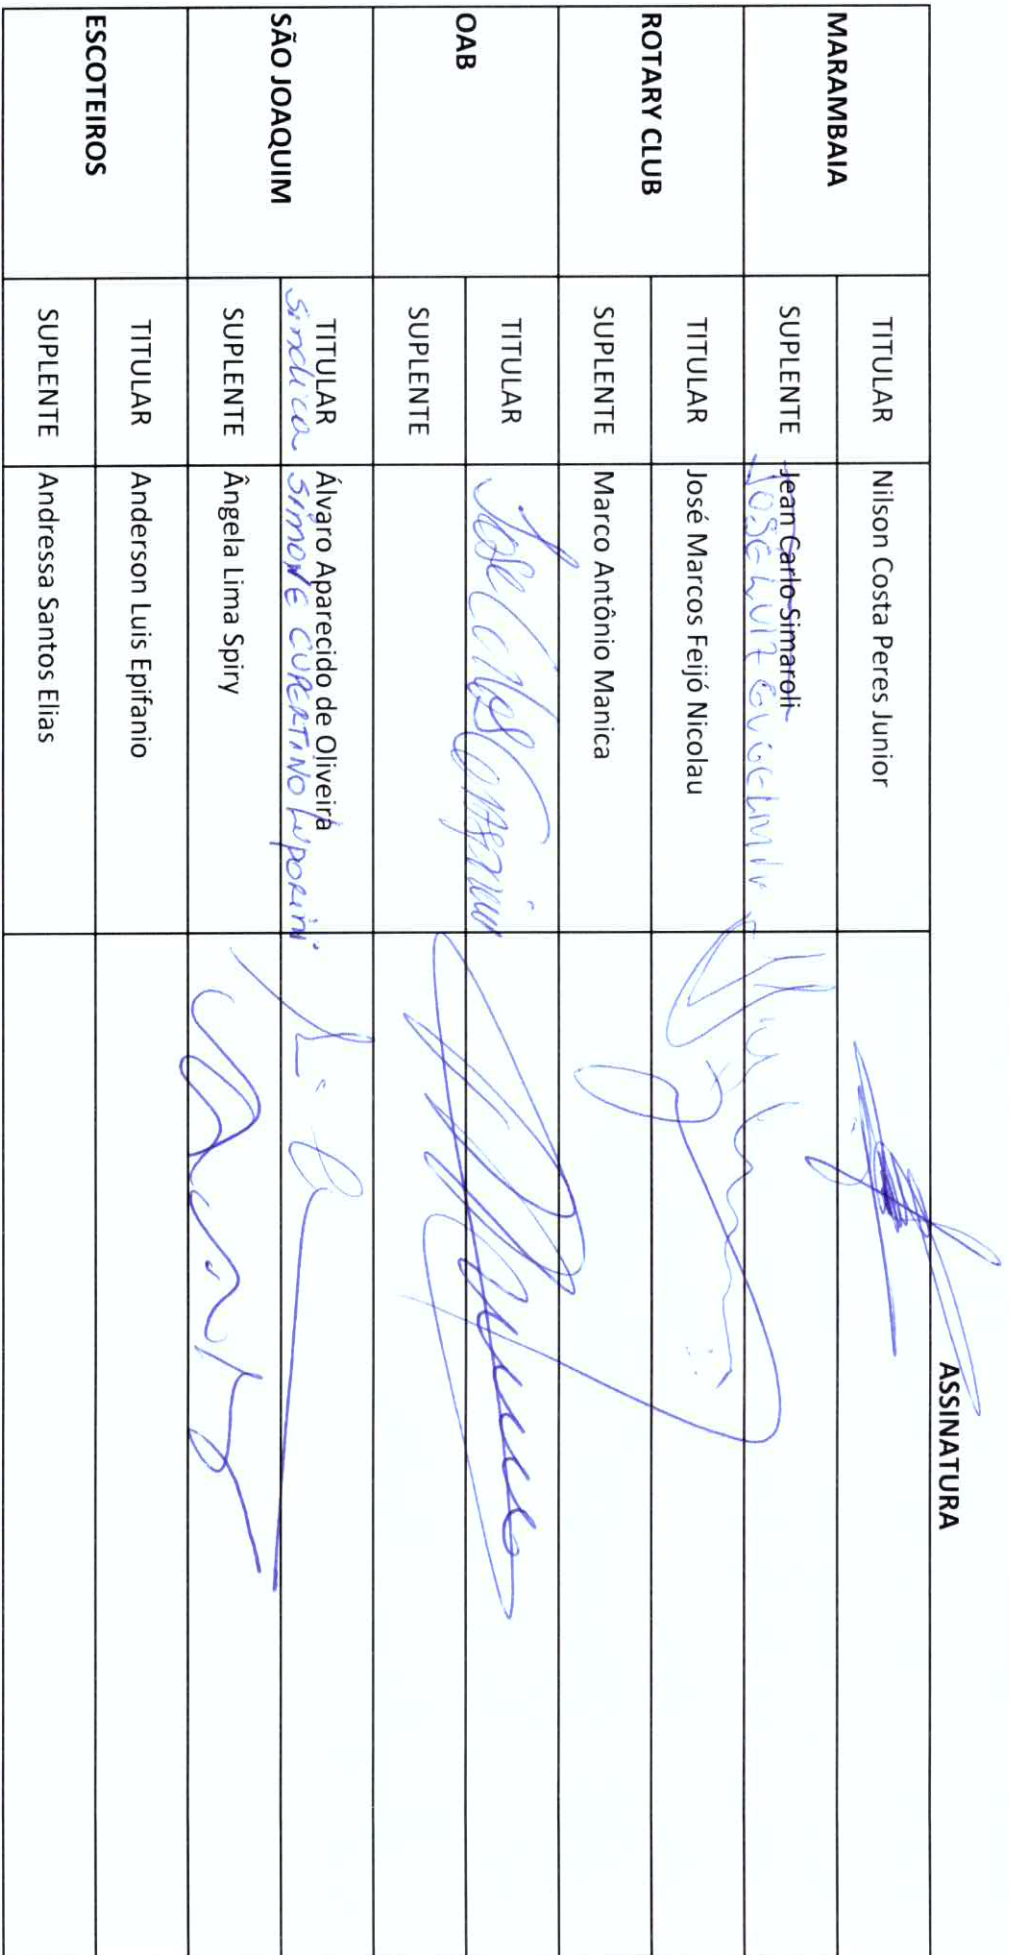 ASSINATURA
MARAMBAIA
TITULAR Nilson Costa Peres Junior
SUPLENTE Jean Carlo Simaroli
JOSE LUIZ
ROTARY CLUB
TITULAR José Marcos Feijó Nicolau
SUPLENTE Marco Antônio Manica
OAB
TITULAR Jose
SUPLENTE
SÃO JOAQUIM
TITULAR Álvaro Aparecido de Oliveira
Sindica SIMONE CUPERTINO Luporini
SUPLENTE Ângela Lima Spiry
ESCOTEIROS
TITULAR Anderson Luis Epifanio
SUPLENTE Andressa Santos Elias